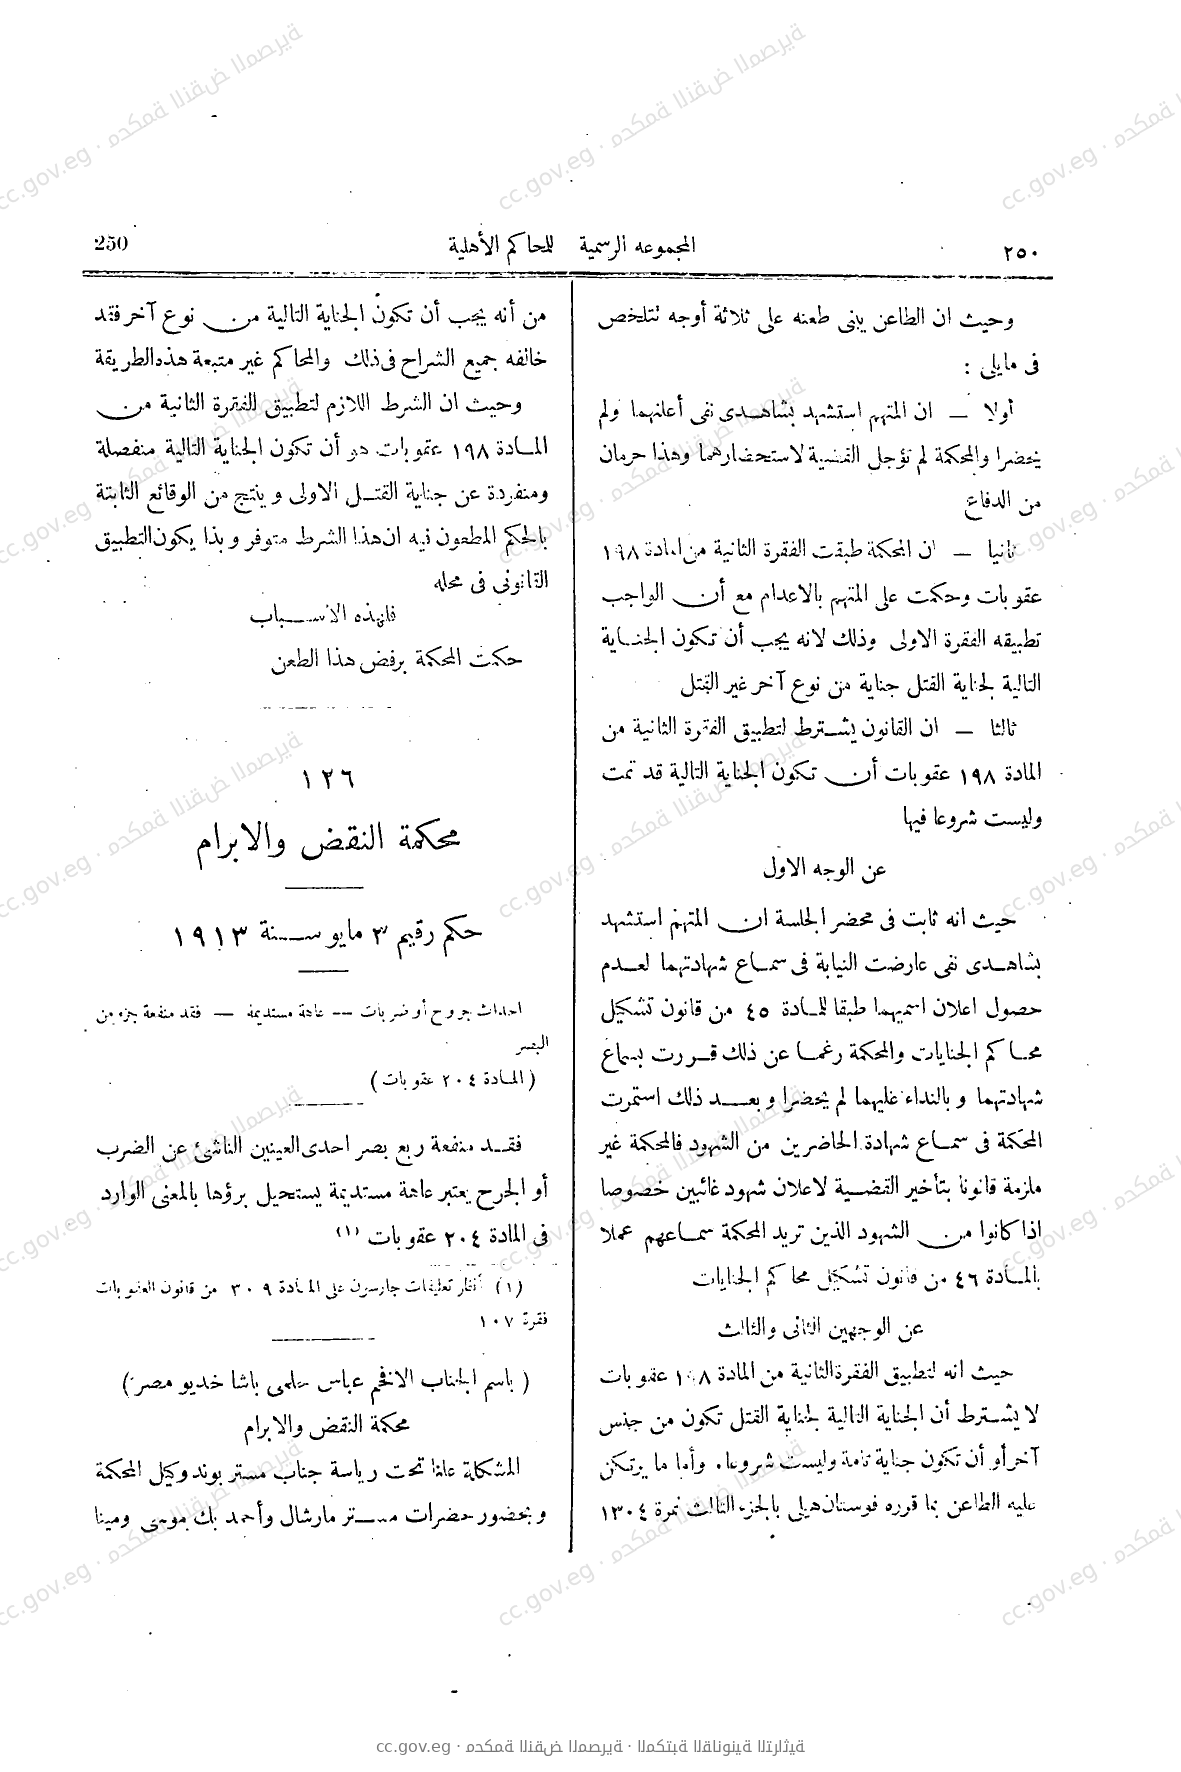 ٢٥٠
المجموعه الرسمية للمحاكم الأهلية
250
وحيث ان الطاعن يبنى طعنه على ثلاثة أوجه تتلخص
فى مايلى :
أولا — ان المتهم استشهد بشاهدى نفى أعلنهما ولم
يحضرا والمحكمة لم تؤجل القضية لاستحضارهما وهذا حرمان
من الدفاع
ثانيا — ان المحكمة طبقت الفقرة الثانية من المادة ١٩٨
عقوبات وحكمت على المتهم بالاعدام مع أن الواجب
تطبيقه الفقرة الاولى وذلك لانه يجب أن تكون الجناية
التالية لجناية القتل جناية من نوع آخر غير القتل
ثالثا — ان القانون يشترط لتطبيق الفقرة الثانية من
المادة ١٩٨ عقوبات أن تكون الجناية التالية قد تمت
وليست شروعا فيها
عن الوجه الاول
حيث انه ثابت فى محضر الجلسة ان المتهم استشهد
بشاهدى نفى عارضت النيابة فى سماع شهادتهما لعدم
حصول اعلان اسميهما طبقا للمادة ٤٥ من قانون تشكيل
محاكم الجنايات والمحكمة رغما عن ذلك قررت بسماع
شهادتهما وبالنداء عليهما لم يحضرا وبعد ذلك استمرت
المحكمة فى سماع شهادة الحاضرين من الشهود فالمحكمة غير
ملزمة قانونا بتأخير القضية لاعلان شهود غائبين خصوصا
اذا كانوا من الشهود الذين تريد المحكمة سماعهم عملا
بالمادة ٤٦ من قانون تشكيل محاكم الجنايات
عن الوجهين الثانى والثالث
حيث انه لتطبيق الفقرة الثانية من المادة ١٩٨ عقوبات
لا يشترط أن الجناية التالية لجناية القتل تكون من جنس
آخر أو أن تكون جناية تامة وليست شروعا. وأما ما يرتكن
عليه الطاعن بما قرره فوستان هيلى بالجزء الثالث نمرة ١٣٠٤
من أنه يجب أن تكون الجناية التالية من نوع آخر فقد
خالفه جميع الشراح فى ذلك والمحاكم غير متبعة هذه الطريقة
وحيث ان الشرط اللازم لتطبيق الفقرة الثانية من
المادة ١٩٨ عقوبات هو أن تكون الجناية التالية منفصلة
ومنفردة عن جناية القتل الاولى وينتج من الوقائع الثابتة
بالحكم المطعون فيه ان هذا الشرط متوفر وبذا يكون التطبيق
القانونى فى محله
فلهذه الاسباب
حكمت المحكمة برفض هذا الطعن
١٢٦
محكمة النقض والابرام
حكم رقيم ٣ مايو سنة ١٩١٣
احداث جروح أو ضربات — عاهة مستديمة — فقد منفعة جزء من
البصر
( المادة ٢٠٤ عقوبات )
فقد منفعة ربع بصر احدى العينين الناشئ عن الضرب
أو الجرح يعتبر عاهة مستديمة يستحيل برؤها بالمعنى الوارد
فى المادة ٢٠٤ عقوبات (١)
(١) أنظر تعليقات جارسون على المادة ٣٠٩ من قانون العقوبات
فقرة ١٠٧
( باسم الجناب الافخم عباس حلمى باشا خديو مصر )
محكمة النقض والابرام
المشكلة علنا تحت رياسة جناب مستر بوند وكيل المحكمة
وبحضور حضرات مستر مارشال وأحمد بك موسى ومينا
cc.gov.eg · محكمة النقض المصرية · المكتبة القانونية التراثية